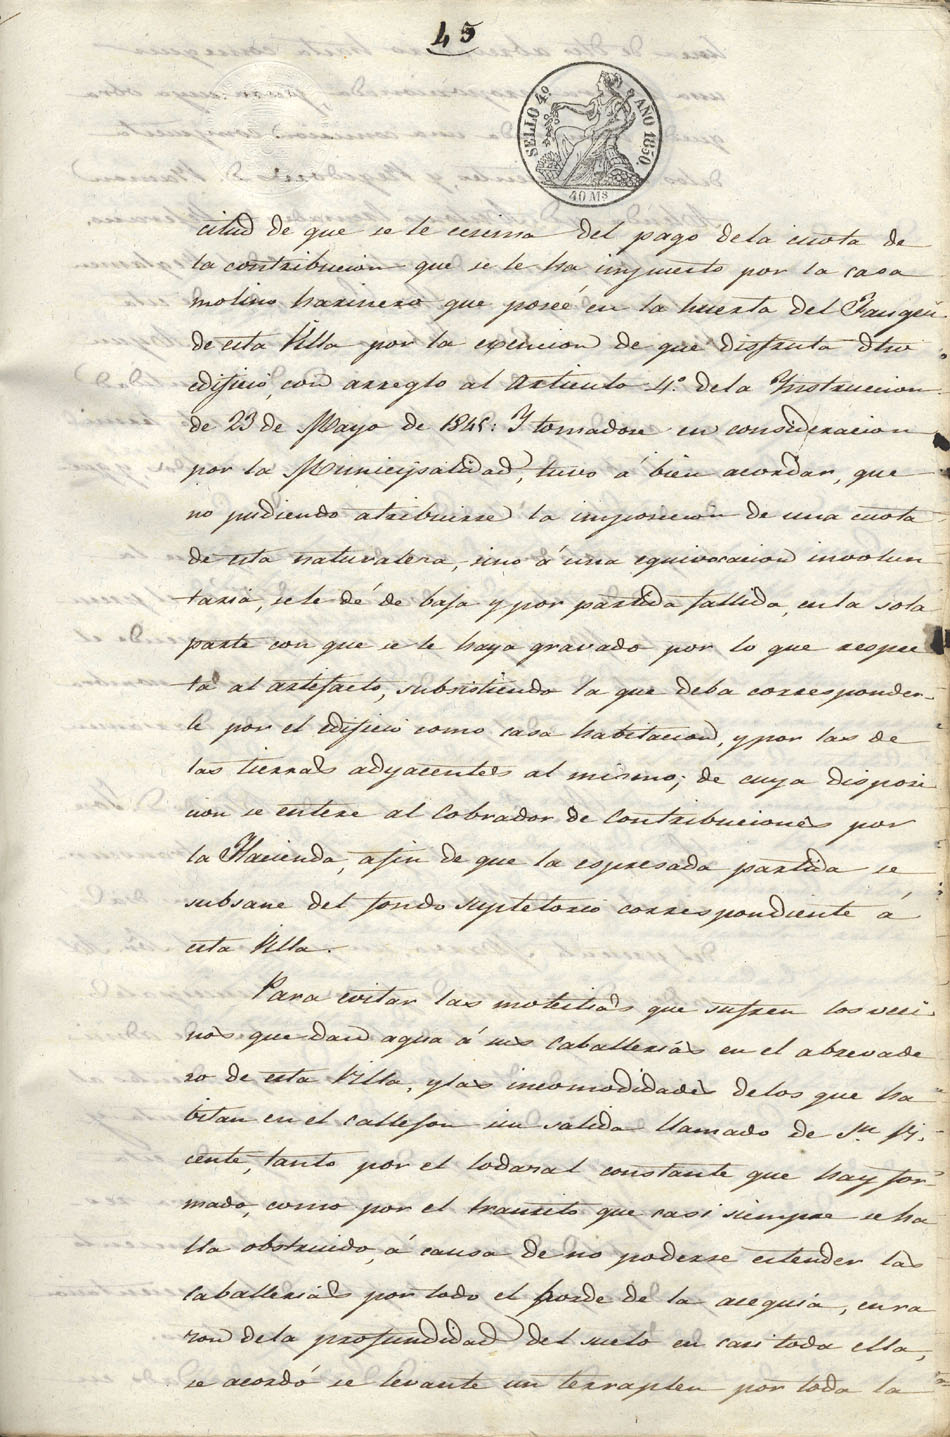 45
SELLO 4º AÑO 1850.
40 Ms
citud de que se le ecsima del pago dela cuota de
la contribucion que se le ha impuesto por la casa
molino harinero que poseé en la huerta del
de esta Villa por la exencion de que disfruta dho
edificio, con arreglo al Articulo 4.º dela Instruccion
de 23 de Mayo de 1845: Y tomadose en consideracion
por la Municipalidad, tuvo á bien acordar, que
no pudiendo atribuirse la imposicion de una cuota
de esta naturaleza, sino á una equivocacion involun
taria, se le dé de baja y por partida fallida, en la sola
parte con que se le haya gravado por lo que respec
ta al artefacto, subsistiendo la que deba corresponder
le por el edificio como casa habitacion, y por las de
las tierras adyacentes al mismo; de cuya disposi
cion se entere al Cobrador de Contribuciones por
la Hacienda, afin de que la espresada partida se
subsane del fondo supletorio correspondiente á
esta Villa.
Para evitar las molestias que sufren los veci
nos que dan agua á sus caballerias en el abrevade
ro de esta Villa, y las incomodidades delos que ha
bitan en el callejon sin salida llamado de Sn Vi
cente, tanto por el lodazal constante que hay for
mado, como por el transito que casi siempre se ha
lla obstruido, á causa de no poderse estender las
caballerias por todo el borde de la acequia, en ra
zon dela profundidad del suelo en casi toda ella,
se acordó se levante un terraplen por toda la